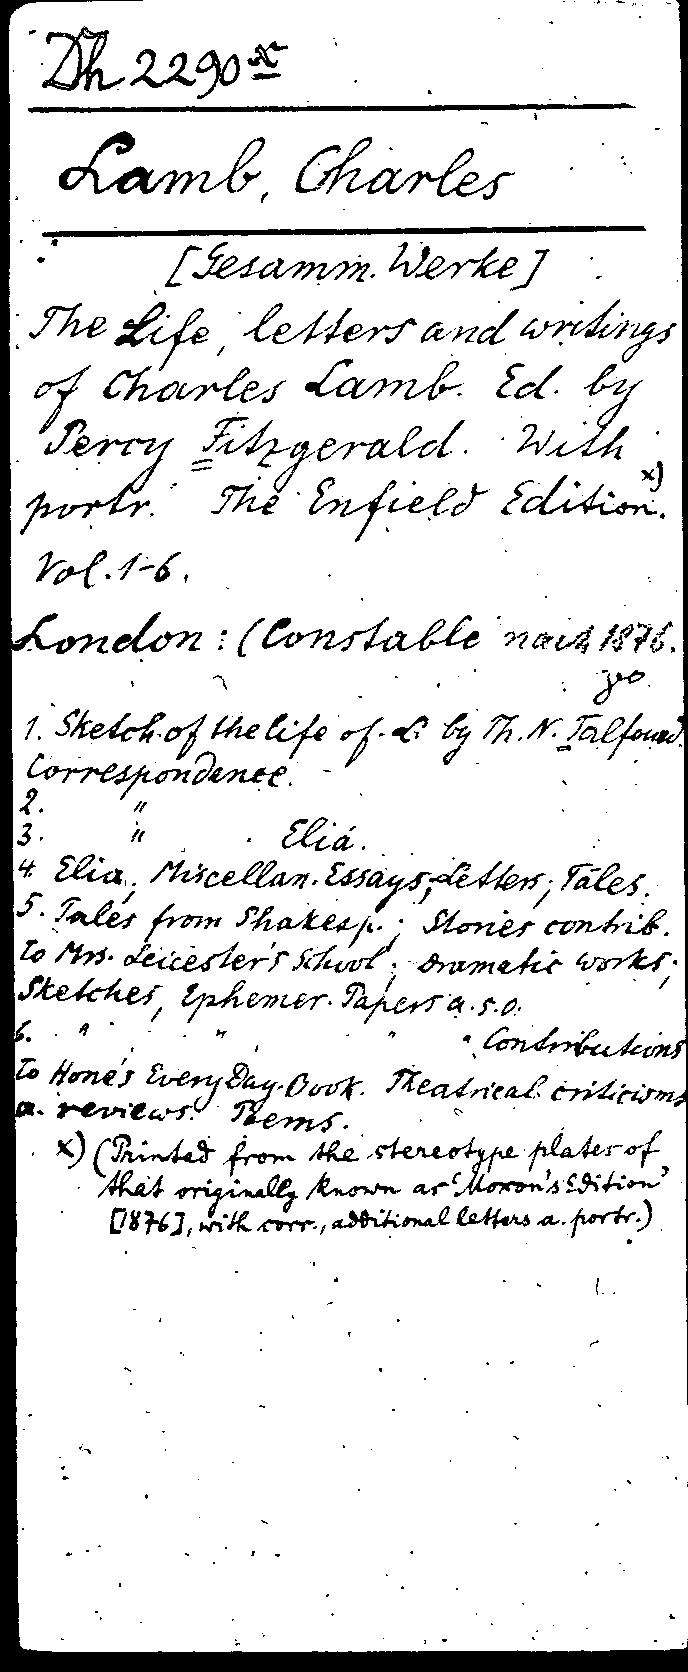 Dh 2290 x
Lamb, Charles
[Gesamm. Werke]
The Life, letters and writings
of Charles Lamb. Ed. by
Percy Fitzgerald. With
portr. The Enfield Edition. x)
Vol. 1-6.
London: (Constable nach 1876.
1. Sketch of the life of L. by Th. N. Talfourd.
Correspondence.
2. "
3. " Elia.
4. Elia; Miscellan. Essays; Letters; Tales.
5. Tales from Shakesp.; Stories contrib.
to Mrs. Leicester's School; Dramatic works;
Sketches, Ephemer. Papers a.s.o.
6. " " " " Contributions
to Hone's Every Day-Book. Theatrical criticisms
a. reviews. Poems.
x) (Printed from the stereotype plates of
that originally known as 'Moxon's Edition'
[1876], with corr., additional letters a. portr.)